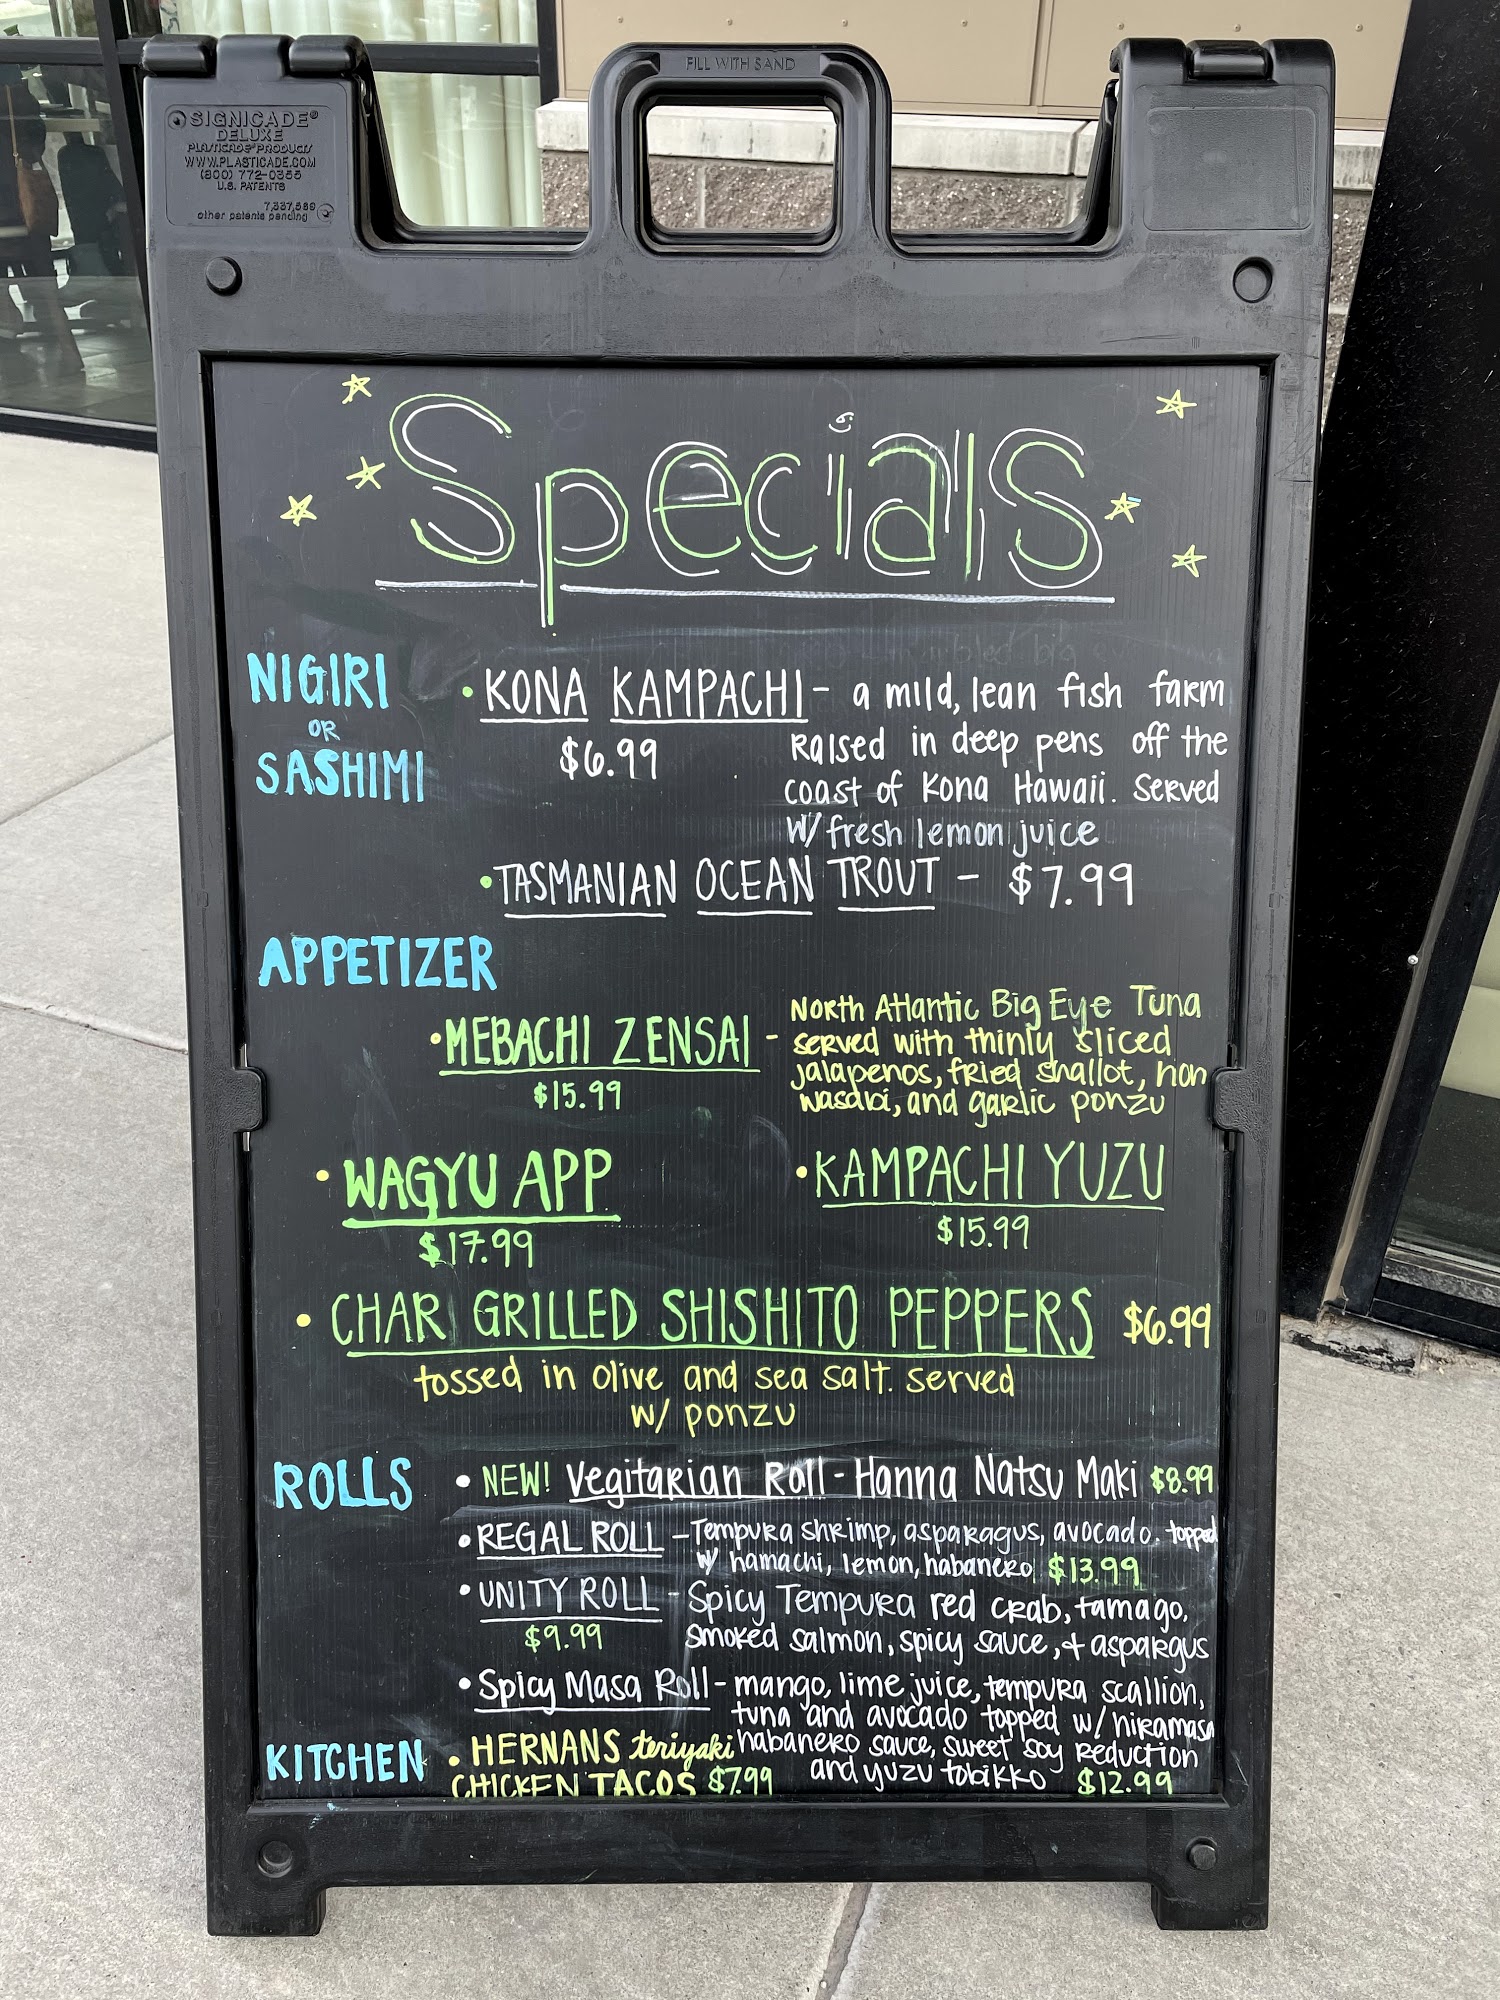 FILL WITH SAND
SIGNICADE®
DELUXE
PLASTICADE® PRODUCTS
WWW.PLASTICADE.COM
(800) 772-0355
U.S. PATENTS
7,337,569
other patents pending
Specials
NIGIRI
OR
SASHIMI
• KONA KAMPACHI - a mild, lean fish farm
$6.99 Raised in deep pens off the
coast of Kona Hawaii. Served
w/ fresh lemon juice
• TASMANIAN OCEAN TROUT - $7.99
APPETIZER
• MEBACHI ZENSAI - North Atlantic Big Eye Tuna
served with thinly sliced
$15.99 jalapenos, fried shallot, hon
wasabi, and garlic ponzu
• WAGYU APP
$17.99
• KAMPACHI YUZU
$15.99
• CHAR GRILLED SHISHITO PEPPERS $6.99
tossed in olive and sea salt. served
w/ ponzu
ROLLS • NEW! Vegitarian Roll - Hanna Natsu Maki $8.99
• REGAL ROLL - Tempura shrimp, asparagus, avocado. topped
w/ hamachi, lemon, habanero $13.99
• UNITY ROLL - Spicy Tempura red crab, tamago,
$9.99 smoked salmon, spicy sauce, + aspargus
• Spicy Masa Roll - mango, lime juice, tempura scallion,
tuna and avocado topped w/ hiramasa
habanero sauce, sweet soy reduction
and yuzu tobikko $12.99
KITCHEN • HERNANS teriyaki
CHICKEN TACOS $7.99